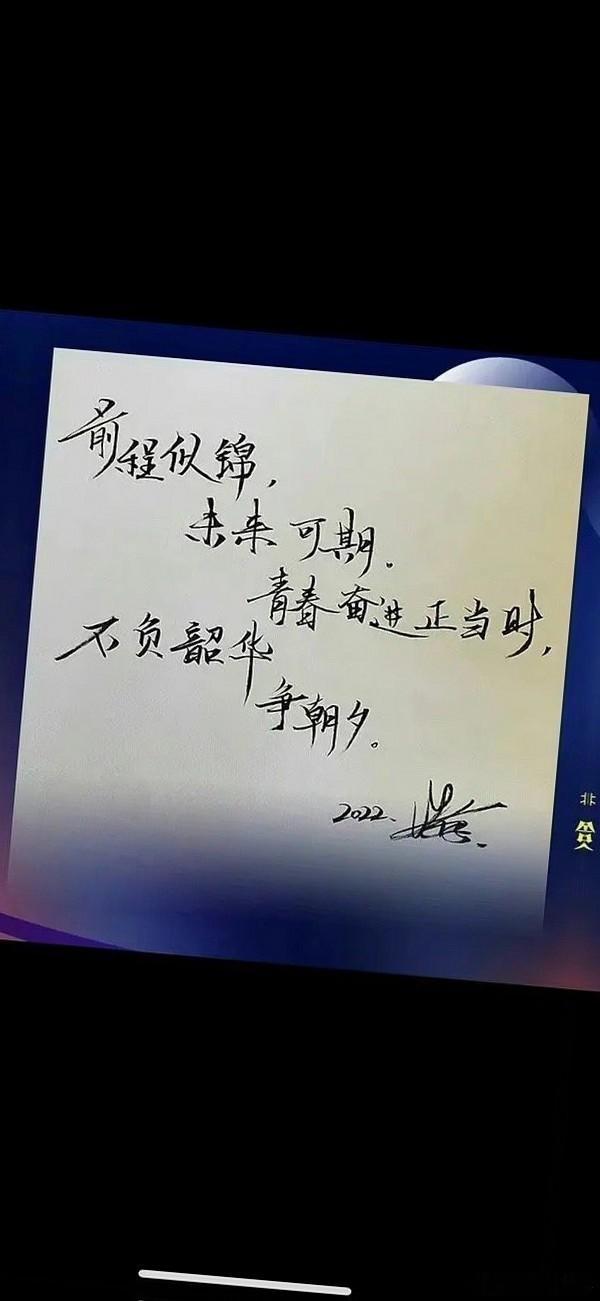 前程似锦，
未来可期.
青春奋进正当时，
不负韶华
争朝夕。
2022.
非